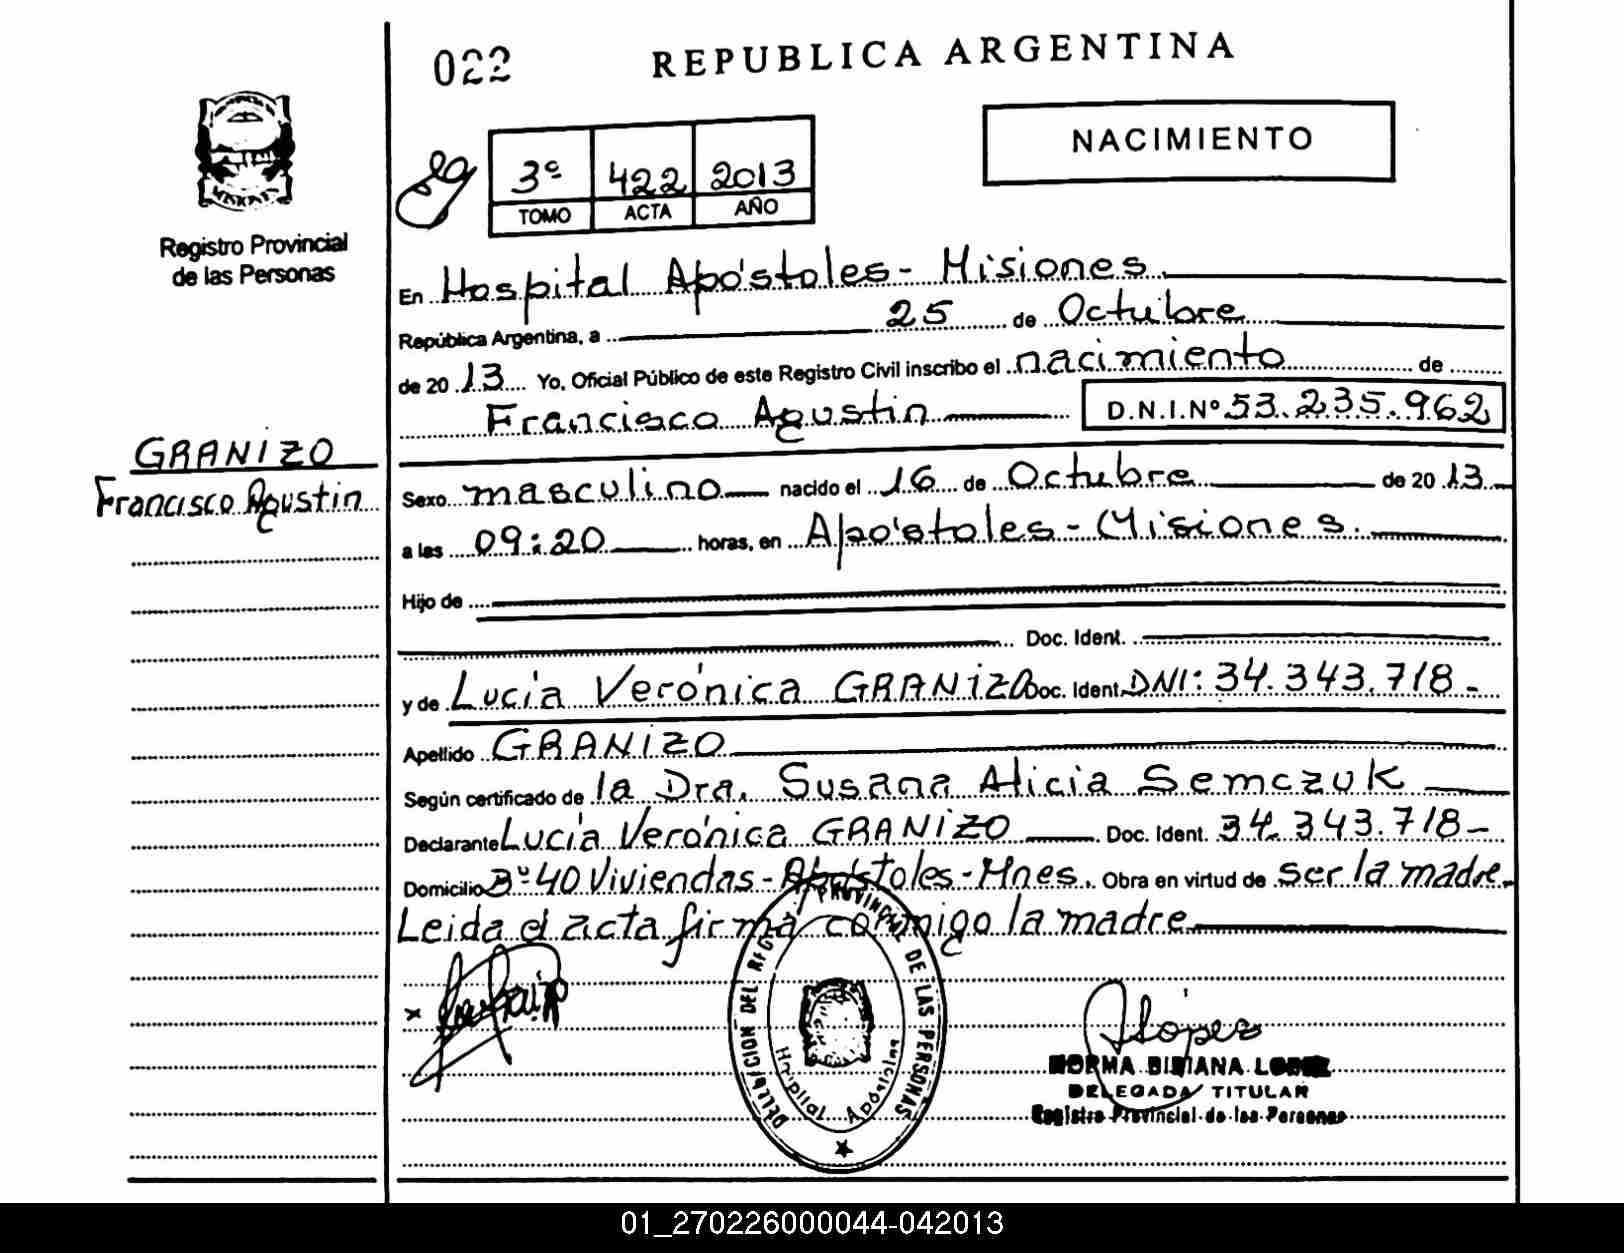 022
REPUBLICA ARGENTINA
NACIMIENTO
3º 422 2013
TOMO ACTA AÑO
Registro Provincial
de las Personas
En Hospital Apóstoles - Misiones
República Argentina, a 25 de Octubre
de 2013 Yo, Oficial Público de este Registro Civil inscribo el nacimiento de
Francisco Agustin D.N.I.Nº 53.235.962
GRANIZO
Francisco Agustin
Sexo masculino nacido el 16 de Octubre de 2013
a las 09:20 horas, en Apóstoles - Misiones.
Hijo de
Doc. Ident.
y de Lucía Verónica GRANIZO Doc. Ident. DNI: 34.343.718 -
Apellido GRANIZO
Según certificado de la Dra. Susana Alicia Semczuk
Declarante Lucía Verónica GRANIZO Doc. Ident. 34.343.718 -
Domicilio Bº 40 Viviendas - Apóstoles - Mnes. Obra en virtud de ser la madre.
Leida el acta firma conmigo la madre
DELEGACION DEL REG. PROVINCIAL DE LAS PERSONAS
Hospital Apóstoles
NORMA BIBIANA LOPEZ
DELEGADA TITULAR
Registro Provincial de las Personas
01_270226000044-042013